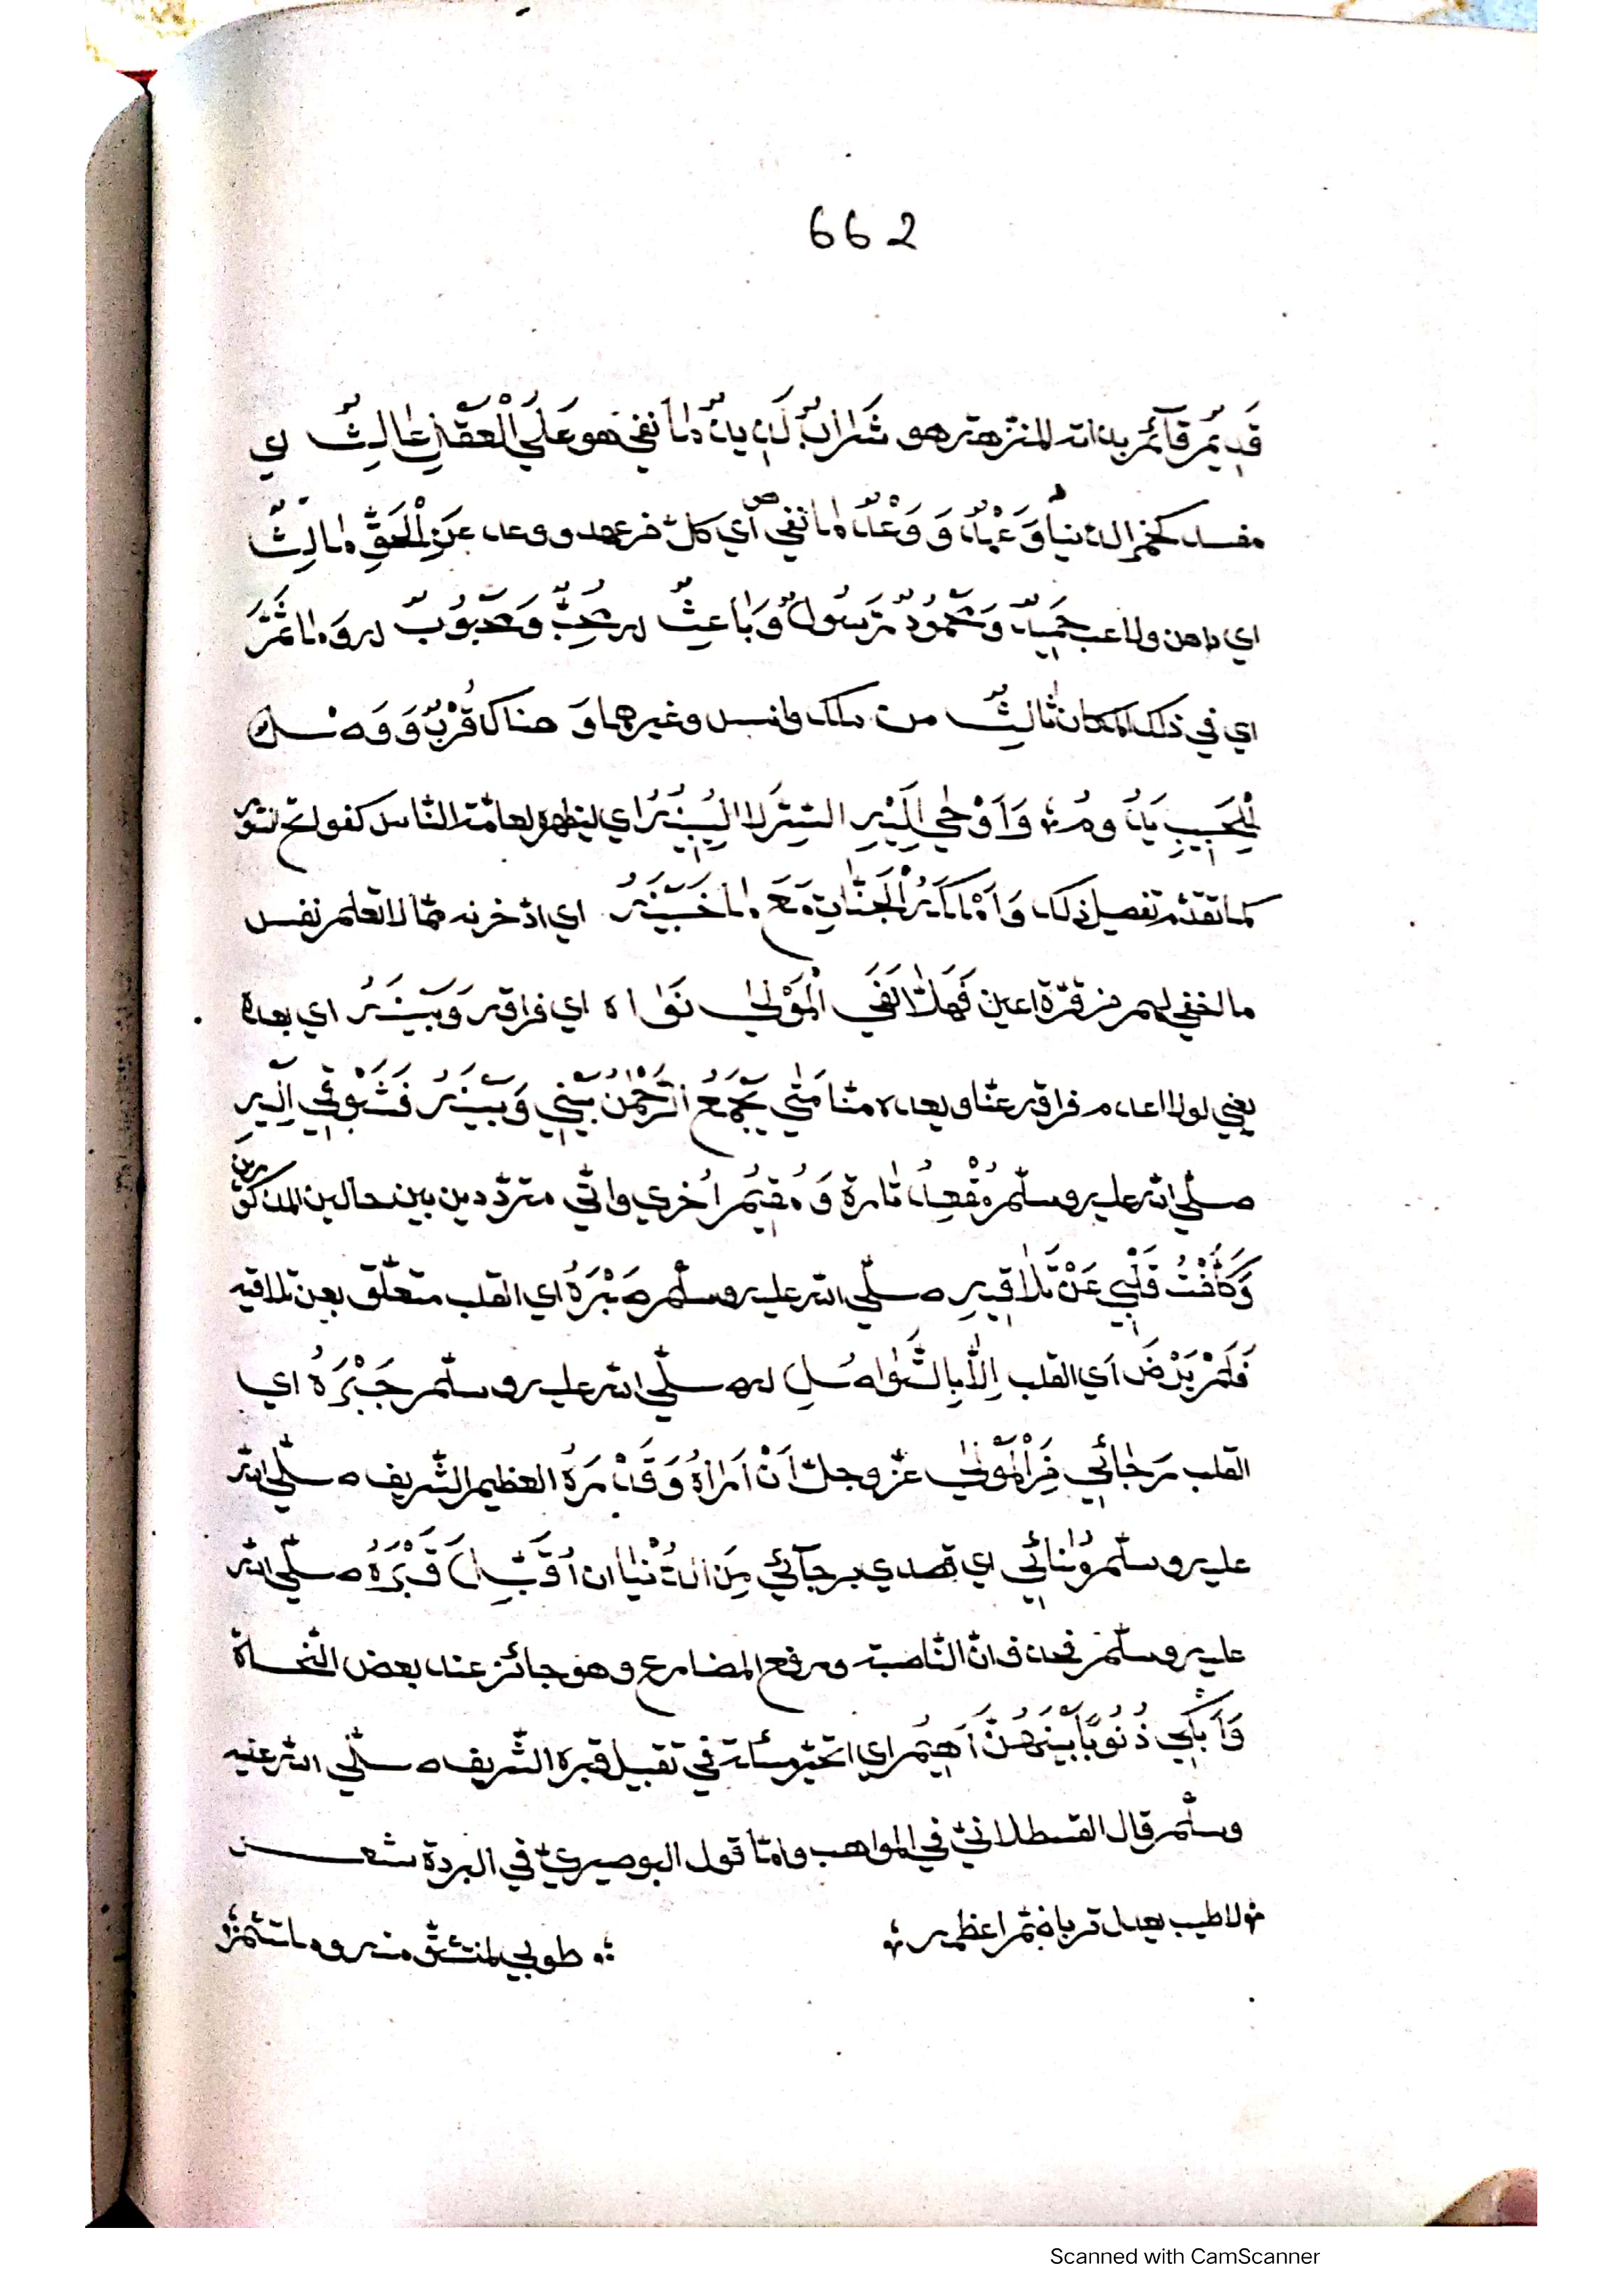 662
قَدِيمٌ قَآئم بذاته المنزهة هو شَرَابٌ لَذِيذٌ مَا نفي هو عَلَي الْعَقْلِ عَالِثٌ اي
مفسد كخمر الدنيا وَعَهْدٌ وَ وَعْدٌ مَا نفي اي كل من عهد ووعد عَنِ الْحَقِّ مَالِثٌ
اي داهن ولاعب حَمِيدٌ وَمَحْمُودٌ رَسُولٌ وَبَاعِثٌ له مُحِبٌّ وَمَحْبُوبٌ له وَمَا ثَمَّ
اي في ذلك المكان ثَالِثٌ من ملك وانس وغيرهما وَ هناك قُرْبٌ وَ وَصْلٌ
لِلْحَبِيبِ يَدُومُ ؛ وَأَوْحٰي إِلَيْهِ السِّرَّ لَا لِيُبِينَهُ اي ليظهره لعامّة الناس كفواتح السّور
كما تقدّم تفصيل ذلك وَ الْجَنَّاتِ مَعَ مَا خَبَيْنَهُ اي ادّخرنه ممّا لا تعلم نفس
ما اخفي لهم من قرّة اعين فَهَلَّا نَفَي الْمَوْلٰي نَوَاه اي فراقه وَبَيْنَهُ اي بعده
يعني لولا اعدم فراقه عنّا وبعده منّا مَتٰي يَجْمَعُ الرَّحْمٰنُ بَيْنِي وَبَيْنَهُ فَشَوْقِي اِلَيْهِ
صلّي الله عليه وسلّم مُقْعِدٌ تارة وَ مُقِيمٌ اُخري وانّي متردّد بين حالين المذكورين
وَكَلَّفْتُ قَلْبِي عَنْ تَلَاقِيهِ صلّي الله عليه وسلّم صَبْرَهُ اي القلب متعلّق بعن تلاقيه
فَلَمْ يَرْضَ اي القلب اِلَّا بِالتَّوَاصُلِ له صلّي الله عليه وسلّم جَبْرَهُ اي
القلب رَجَائِي مِنَ الْمَوْلٰي عزّ وجلّ اَنْ اَرَاهُ وَقَدْرَهُ العظيم الشّريف صلّي الله
عليه وسلّم وُمُنَائِي اي قصدي برجآئي مِنَ الدُّنْيَا ان اُقَبِّلَ قَبْرَهُ صلّي الله
عليه وسلّم فحذف ان النّاصبة ورفع المضارع وهو جائز عند بعض النّحاة
وَاَبْكِي ذُنُوبًا بَيْنَهُنَّ اَهِيمُ اي اتحيّر مسئلة في تقبيل قبره الشّريف صلّي الله عليه
وسلّم قال القسطلانيّ في المواهب وامّا قول البوصيريّ في البردة شعر
؛ لا طيب يعدل تربا ضمّ اعظمه ؛ ؛ طوبي لمنتشق منه وملتثم ؛
Scanned with CamScanner